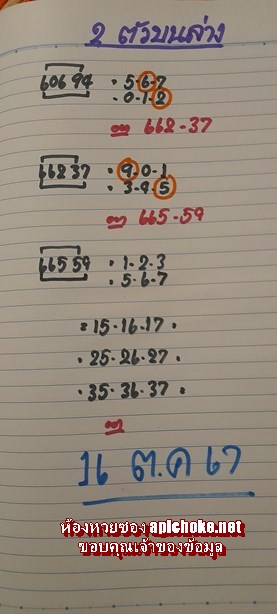 2 ตัวบนล่าง
60694 = 5-6-7
= 0-1-2
ๆ 662-37
66237 = 9-0-1
= 3-4-5
ๆ 665-59
66559 = 1-2-3
= 5-6-7
=15-16-17.
.25-26-27.
.35-36-37.
ๆ
ต.ค 67
ห้องหวยซอง apichoke.net
ขอบคุณเจ้าของข้อมูล